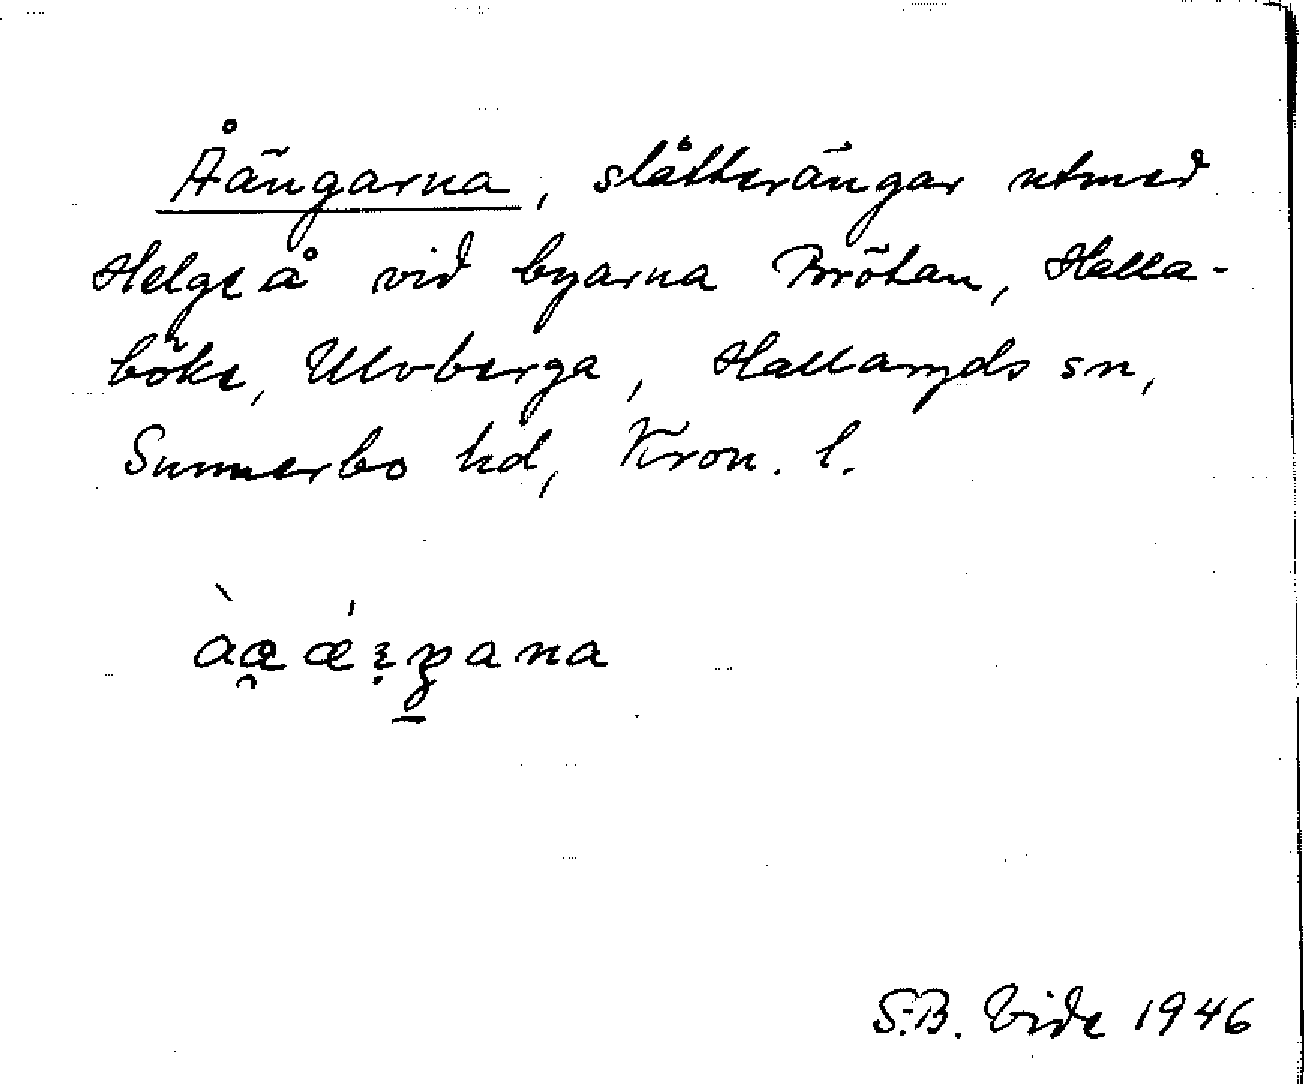 Åängarna, slåtterängar utmed
Helge å vid byarna Brötan, Halla-
böke, Ulvberga, Hallaryds sn,
Sunnerbo hd, Kron. l.
S.B. Vide 1946